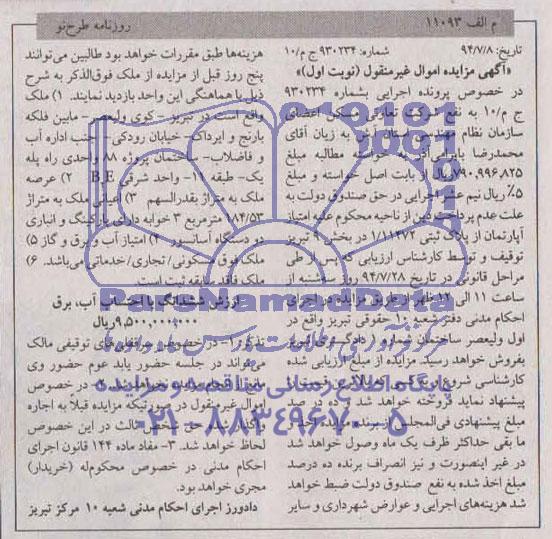 م الف ۱۱۰۹۳
روزنامه طرح‌نو
تاریخ: ۹۴/۷/۸ شماره: ۹۳۰۲۳۴ ج م/۱۰
«آگهی مزایده اموال غیرمنقول (نوبت اول)»
در خصوص پرونده اجرایی بشماره ۹۳۰۲۳۴
ج م/۱۰ به نفع شرکت تعاونی مسکن اعضای
سازمان نظام مهندسی استان آ.ش به زیان آقای
محمدرضا بابرابی آذر به خواسته مطالبه مبلغ
۷۹۰,۹۹۶,۸۲۵ ریال از بابت اصل خواسته و مبلغ
۵٪ ریال نیم عشر اجرایی در حق صندوق دولت به
علت عدم پرداخت دین از ناحیه محکوم علیه امتیاز
آپارتمان از پلاک ثبتی ۱/۱۱۴۷۲ در بخش ۹ تبریز
توقیف و توسط کارشناس ارزیابی که پس از طی
مراحل قانونی در تاریخ ۹۴/۷/۲۸ روز سه‌شنبه از
ساعت ۱۱ الی ۱۲ ظهر از طریق مزایده در اجرای
احکام مدنی دفتر شعبه ۱۰ حقوقی تبریز واقع در
اول ولیعصر ساختمان شماره دادگستری تبریز
بفروش خواهد رسید. مزایده از مبلغ ارزیابی شده
کارشناسی شروع و به کسی که بالاترین قیمت را
پیشنهاد نماید فروخته خواهد شد و ده در صد
مبلغ پیشنهادی فی‌المجلس از برنده مزایده اخذ و
ما بقی حداکثر ظرف یک ماه وصول خواهد شد
در غیر اینصورت و نیز انصراف برنده ده درصد
مبلغ اخذ شده به نفع صندوق دولت ضبط خواهد
شد هزینه‌های اجرایی و عوارض شهرداری و سایر
هزینه‌ها طبق مقررات خواهد بود طالبین می‌توانند
پنج روز قبل از مزایده از ملک فوق‌الذکر به شرح
ذیل با هماهنگی این واحد بازدید نمایند. ۱) ملک
واقع است در تبریز - کوی ولیعصر - مابین فلکه
بارنج و ایرداک - خیابان رودکی - جنب اداره آب
و فاضلاب - ساختمان پروژه ۸۸ واحدی راه پله
یک - طبقه ۱۱ - واحد شرقی B,E ۲) عرصه
ملک به متراژ بقدرالسهم ۳) اعیانی ملک به متراژ
۱۸۴/۵۳ مترمربع ۳ خوابه دارای پارکینگ و انباری
دو دستگاه آسانسور ۴) امتیاز آب و برق و گاز ۵)
ملک فوق مسکونی/ تجاری/ خدماتی می‌باشد. ۶)
ملک فاقد سابقه ثبت است
ارزش ششدانگ با احتساب آب، برق
۹,۵۰۰,۰۰۰,۰۰۰ ریال
تذکر: ۱- در خصوص سرقفلی‌های توقیفی مالک
می‌تواند در جلسه حضور یابد عدم حضور وی
مانع از انجام مزایده نخواهد شد. ۲- در خصوص
اموال غیرمنقول در صورتیکه مزایده قبلاً به اجاره
واگذار شده حقوق شخص ثالث در این خصوص
لحاظ خواهد شد. ۳- مفاد ماده ۱۴۴ قانون اجرای
احکام مدنی در خصوص محکوم‌له (خریدار)
مجری خواهد بود.
دادورز اجرای احکام مدنی شعبه ۱۰ مرکز تبریز
ParsNamadData
پایگاه اطلاع رسانی مناقصه و مزایده
۰۲۱-۸۸۳۴۹۶۷۰-۵